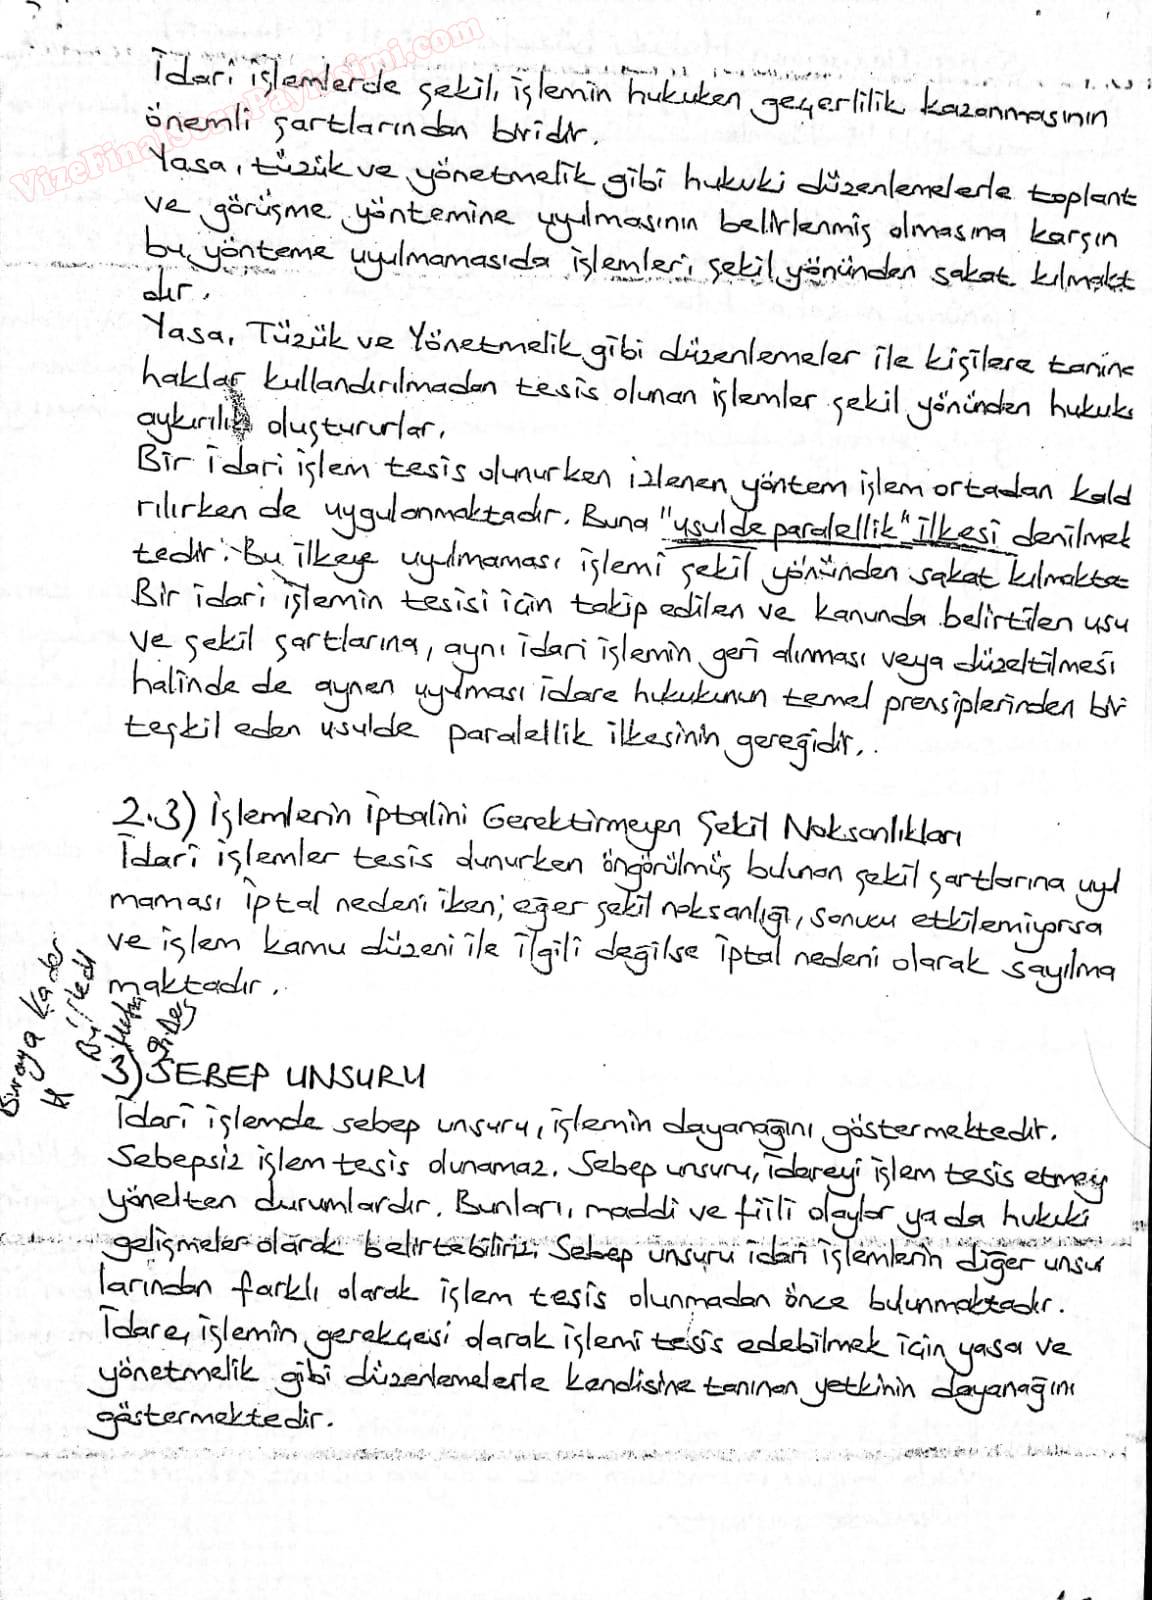 VizeFinalSoruPaylasimi.com
İdari işlemlerde şekil, işlemin hukuken geçerlilik kazanmasının
önemli şartlarından biridir.
Yasa, tüzük ve yönetmelik gibi hukuki düzenlemelerle toplant
ve görüşme yöntemine uyulmasının belirlenmiş olmasına karşın
bu yönteme uyulmamasıda işlemleri şekil yönünden sakat kılmakt
dır.
Yasa, Tüzük ve Yönetmelik gibi düzenlemeler ile kişilere tanına
haklar kullandırılmadan tesis olunan işlemler şekil yönünden hukuki
aykırılık oluştururlar.
Bir idari işlem tesis olunurken izlenen yöntem işlem ortadan kald
rılırken de uygulanmaktadır. Buna "usulde paralellik" ilkesi denilmek
tedir. Bu ilkeye uyulmaması işlemi şekil yönünden sakat kılmakta
Bir idari işlemin tesisi için takip edilen ve kanunda belirtilen usu
ve şekil şartlarına, aynı idari işlemin geri alınması veya düzeltilmesi
halinde de aynen uyulması idare hukukunun temel prensiplerinden bir
teşkil eden usulde paralellik ilkesinin gereğidir.
2.3) İşlemlerin İptalini Gerektirmeyen Şekil Noksanlıkları
İdari işlemler tesis olunurken öngörülmüş bulunan şekil şartlarına uyul
maması iptal nedeni iken; eğer şekil noksanlığı, sonucu etkilemiyorsa
ve işlem kamu düzeni ile ilgili değilse iptal nedeni olarak sayılma
maktadır.
Buraya Kadar
3) SEBEP UNSURU
İdari işlemde sebep unsuru, işlemin dayanağını göstermektedir.
Sebepsiz işlem tesis olunamaz. Sebep unsuru, idareyi işlem tesis etmey
yönelten durumlardır. Bunları, maddi ve fiili olaylar ya da hukuki
gelişmeler olarak belirtebiliriz. Sebep unsuru idari işlemlerin diğer unsur
larından farklı olarak işlem tesis olunmadan önce bulunmaktadır.
İdare, işlemin gerekçesi olarak işlemi tesis edebilmek için yasa ve
yönetmelik gibi düzenlemelerle kendisine tanınan yetkinin dayanağını
göstermektedir.